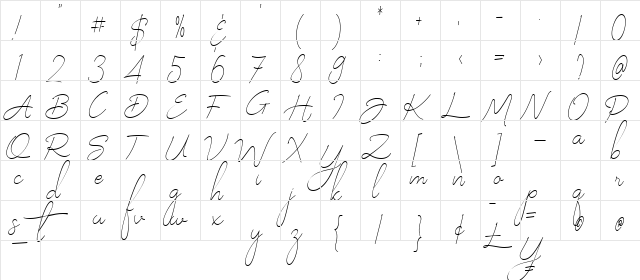 ! " # $ % & ' ( ) * + , - . / 0
1 2 3 4 5 6 7 8 9 : ; < = > ? @
A B C D E F G H I J K L M N O P
Q R S T U V W X Y Z [ \ ] _ a b
c d e f g h i j k l m n o p q r
s t u v w x y z { | } ¢ £ ¥